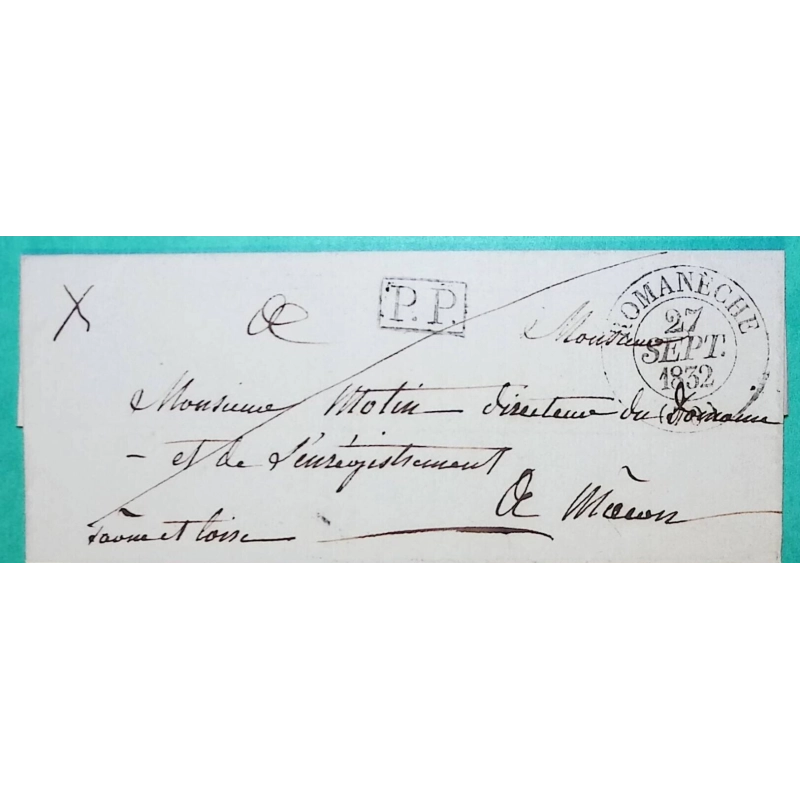 X
P.P.
ROMANÈCHE
27
SEPT.
1832
Monsieur
Monsieur Motin directeur du Domaine
- et de L'enrégistrement
A Mâcon
Saone et Loire